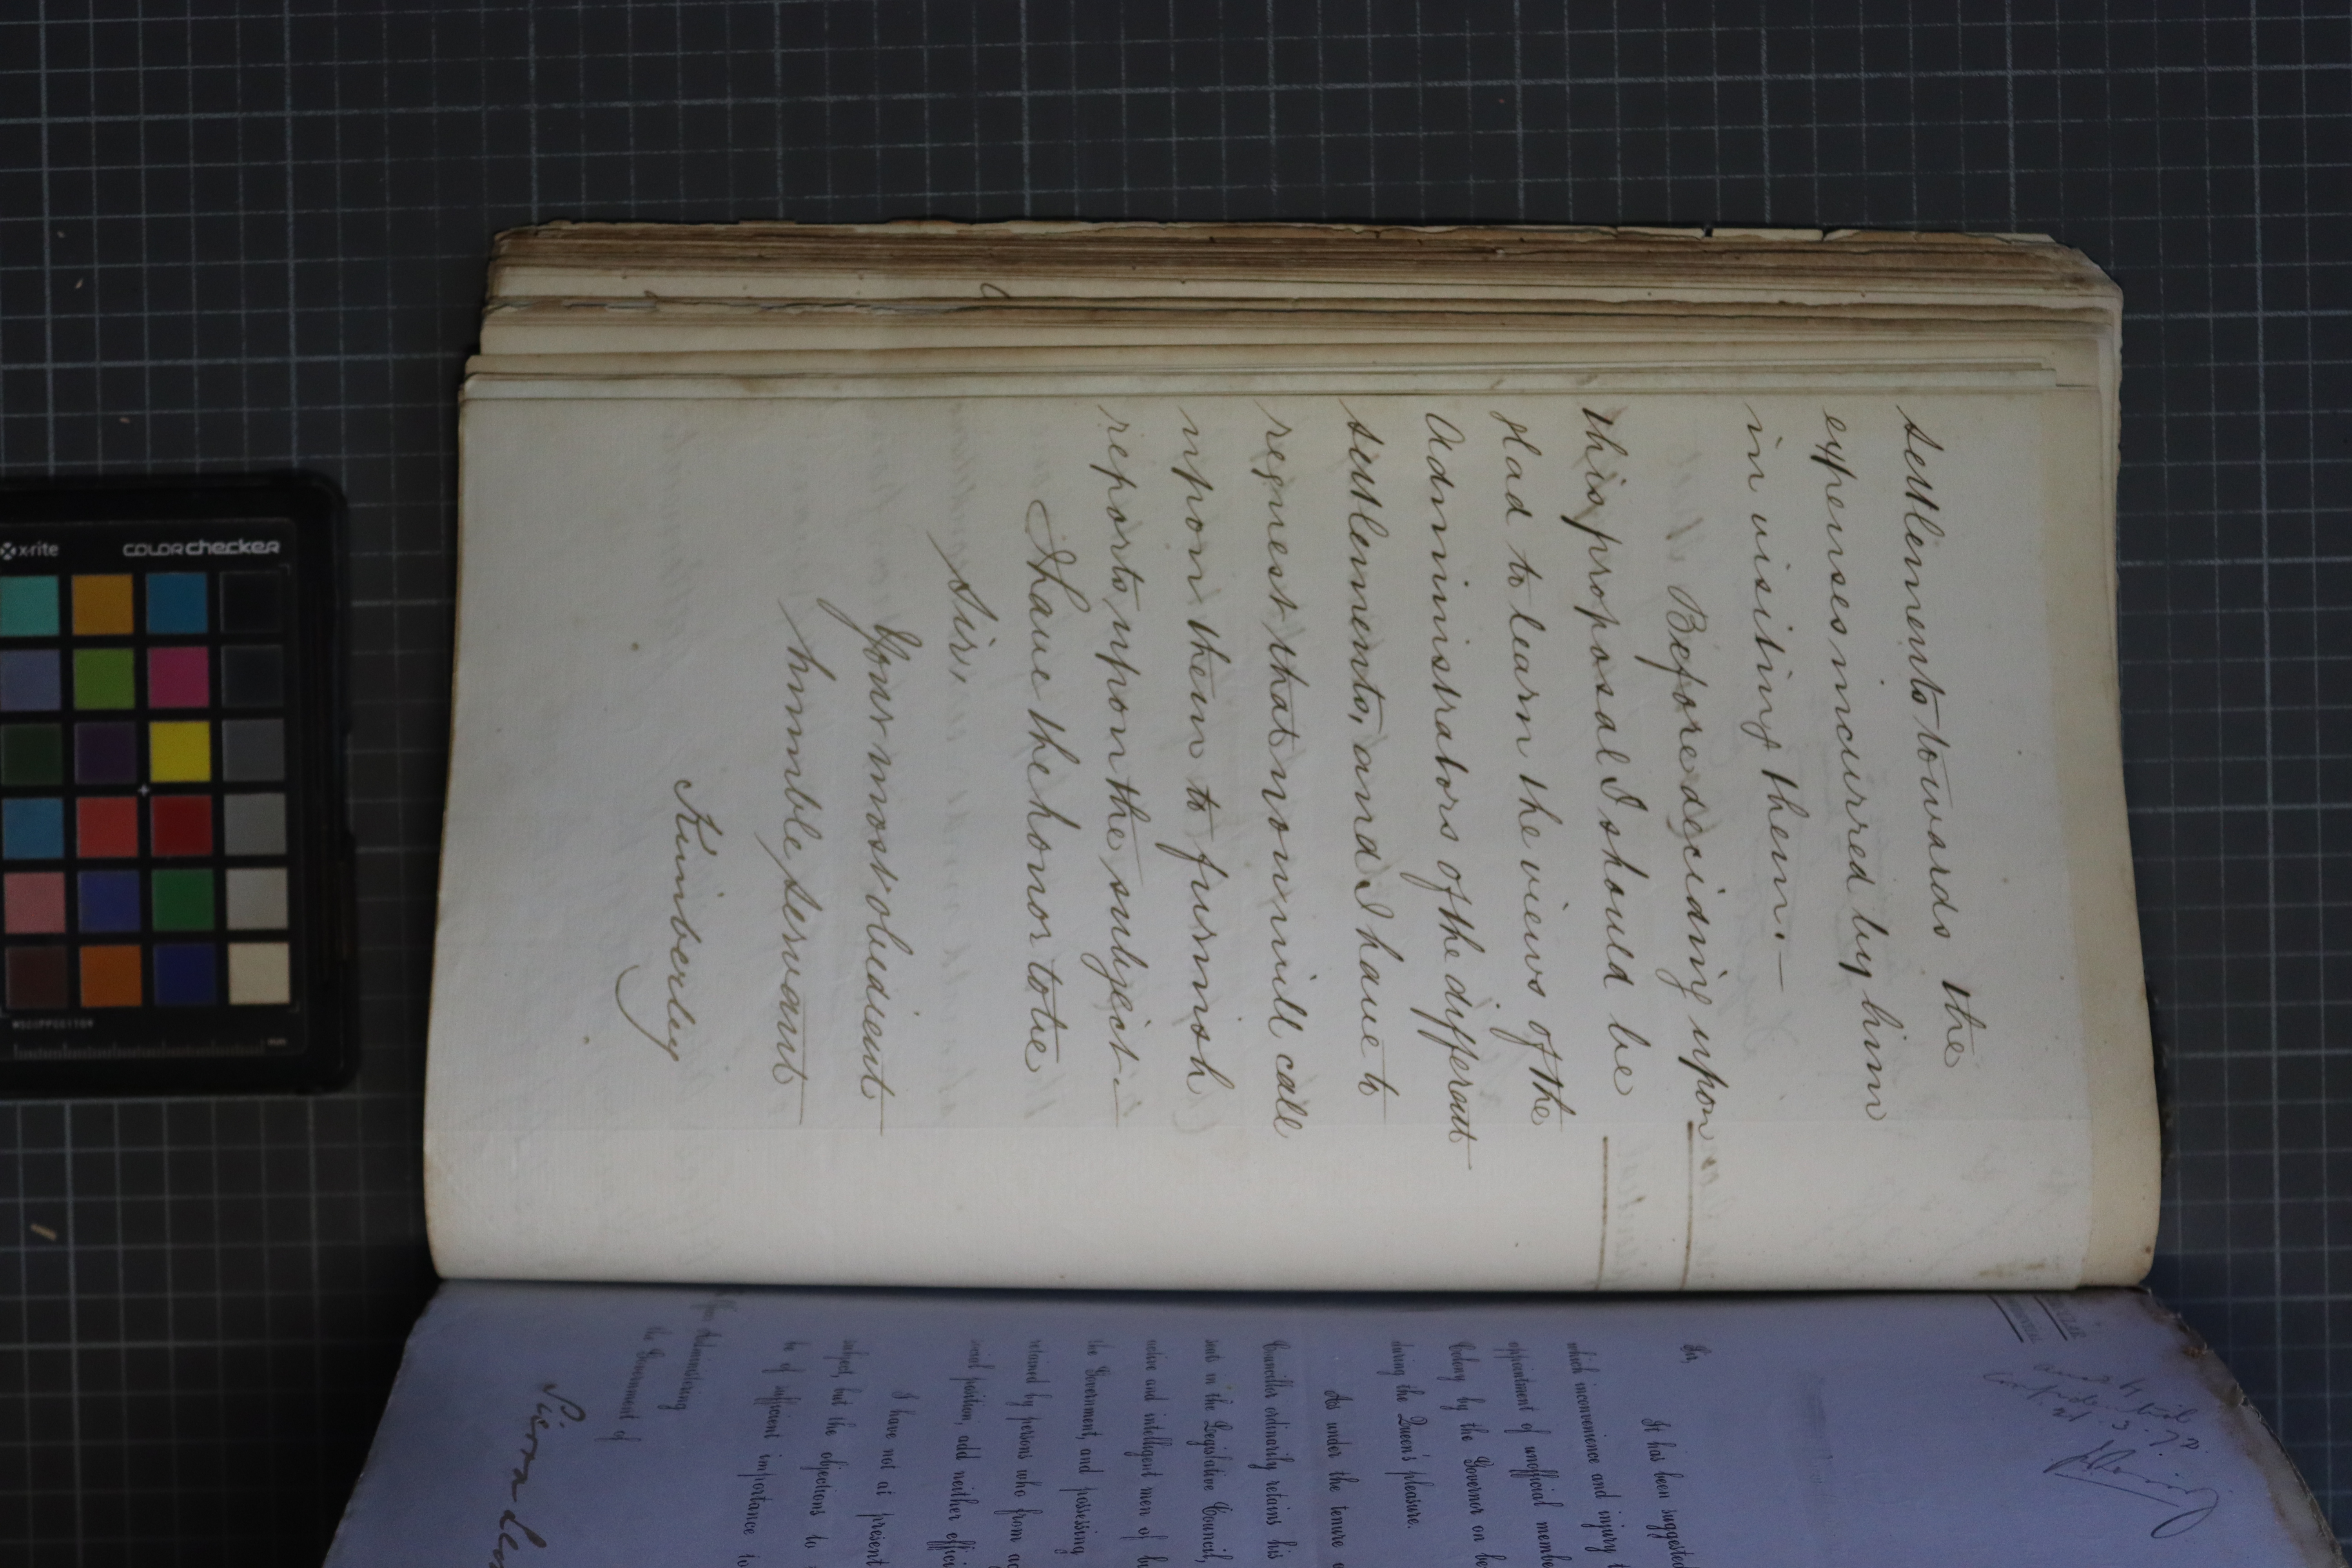 settlements towards the
expenses incurred by him
in visiting them.—
Before deciding upon
this proposal I should be
glad to learn the views of the
Administrators of the different
settlements, and I have to
request that you will call
upon them to furnish
reports upon the subject.—
I have the honor to be
Sir,
Your most obedient
humble servant
Kimberley
Sir,
It has been suggested
which inconvenience and injury
appointment of unofficial
Colony by the Governor on
during the Queen's pleasure.
As under the tenure
Councillor ordinarily retains his
seats in the Legislative Council,
active and intelligent men of
the Government, and possessing
retained by persons who from
social position, add neither
I have not at present
subject, but the objections to
be of sufficient importance to
Officer Administering
the Government of
Sierra
x-rite
colorchecker